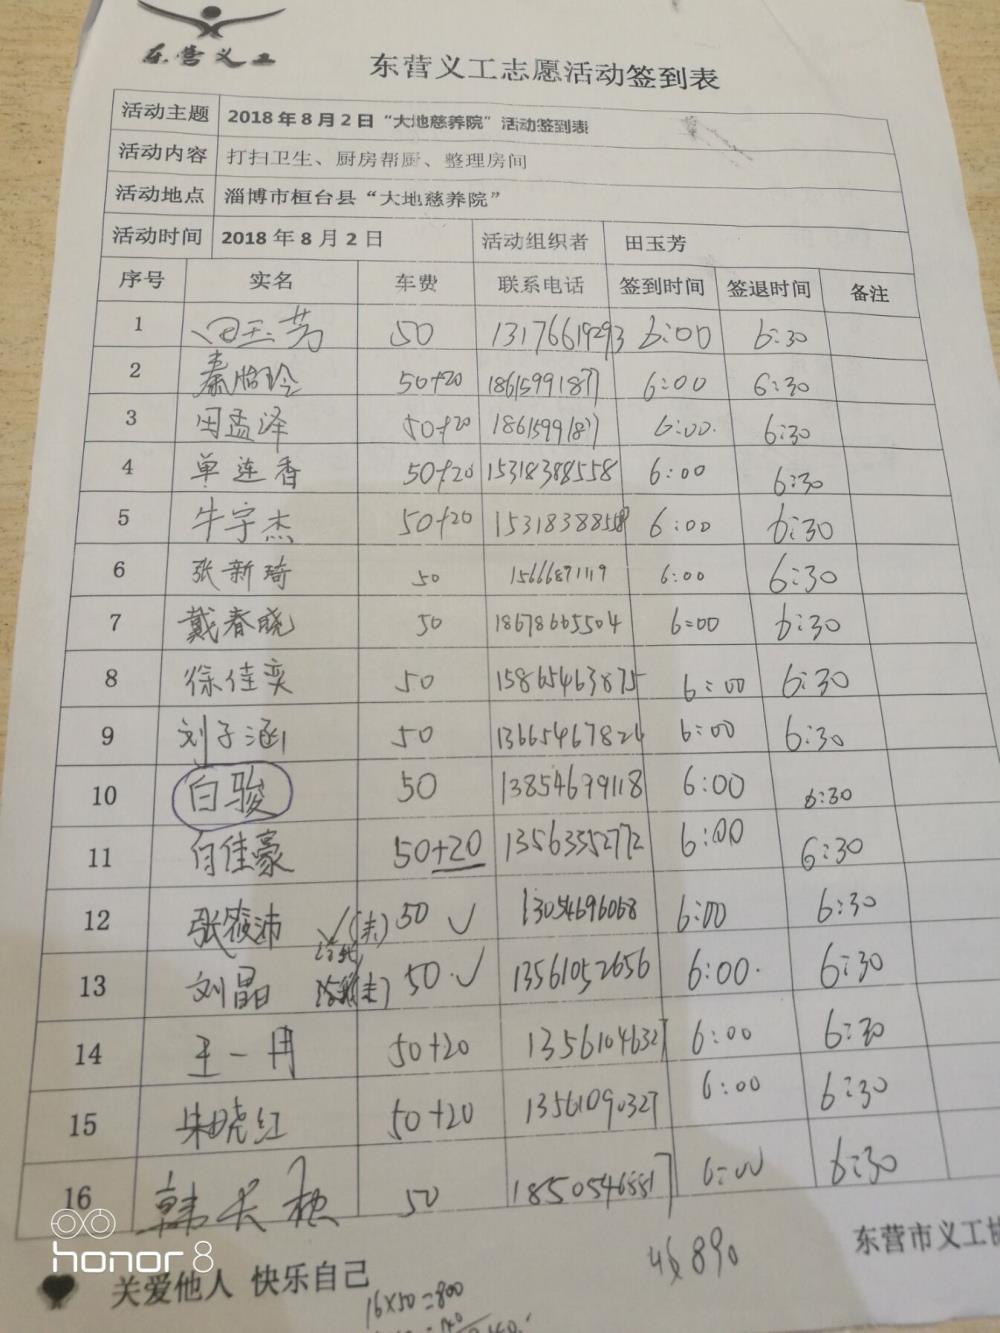 东营义工
东营义工志愿活动签到表
活动主题 2018年8月2日“大地慈养院”活动签到表
活动内容 打扫卫生、厨房帮厨、整理房间
活动地点 淄博市桓台县“大地慈养院”
活动时间 2018年8月2日 活动组织者 田玉芳
序号 实名 车费 联系电话 签到时间 签退时间 备注
1 田玉芳 50 13176619293 6:00 6:30
2 秦 50+20 18615991877 6:00 6:30
3 田孟泽 50+20 18615991877 6:00. 6:30
4 单连香 50+20 15318388558 6:00 6:30
5 牛宇杰 50+20 15318388558 6:00 6:30
6 张新琦 50 15666871119 6:00 6:30
7 戴春晓 50 18678665504 6:00 6:30
8 徐佳奕 50 15865463875 6:00 6:30
9 刘子涵 50 13665467826 6:00 6:30
10 白骏 50 13854699118 6:00 6:30
11 白佳豪 50+20 13563352772 6:00 6:30
12 张筱沛 50 13054696068 6:00 6:30
13 刘晶 50 13561052656 6:00. 6:30
14 王一冉 50+20 13561046327 6:00 6:30
15 朱晓红 50+20 13561090327 6:00 6:30
16 韩 50 18505465517 6:00 6:30
890
东营市义工协
关爱他人 快乐自己
16×50=800
honor 8